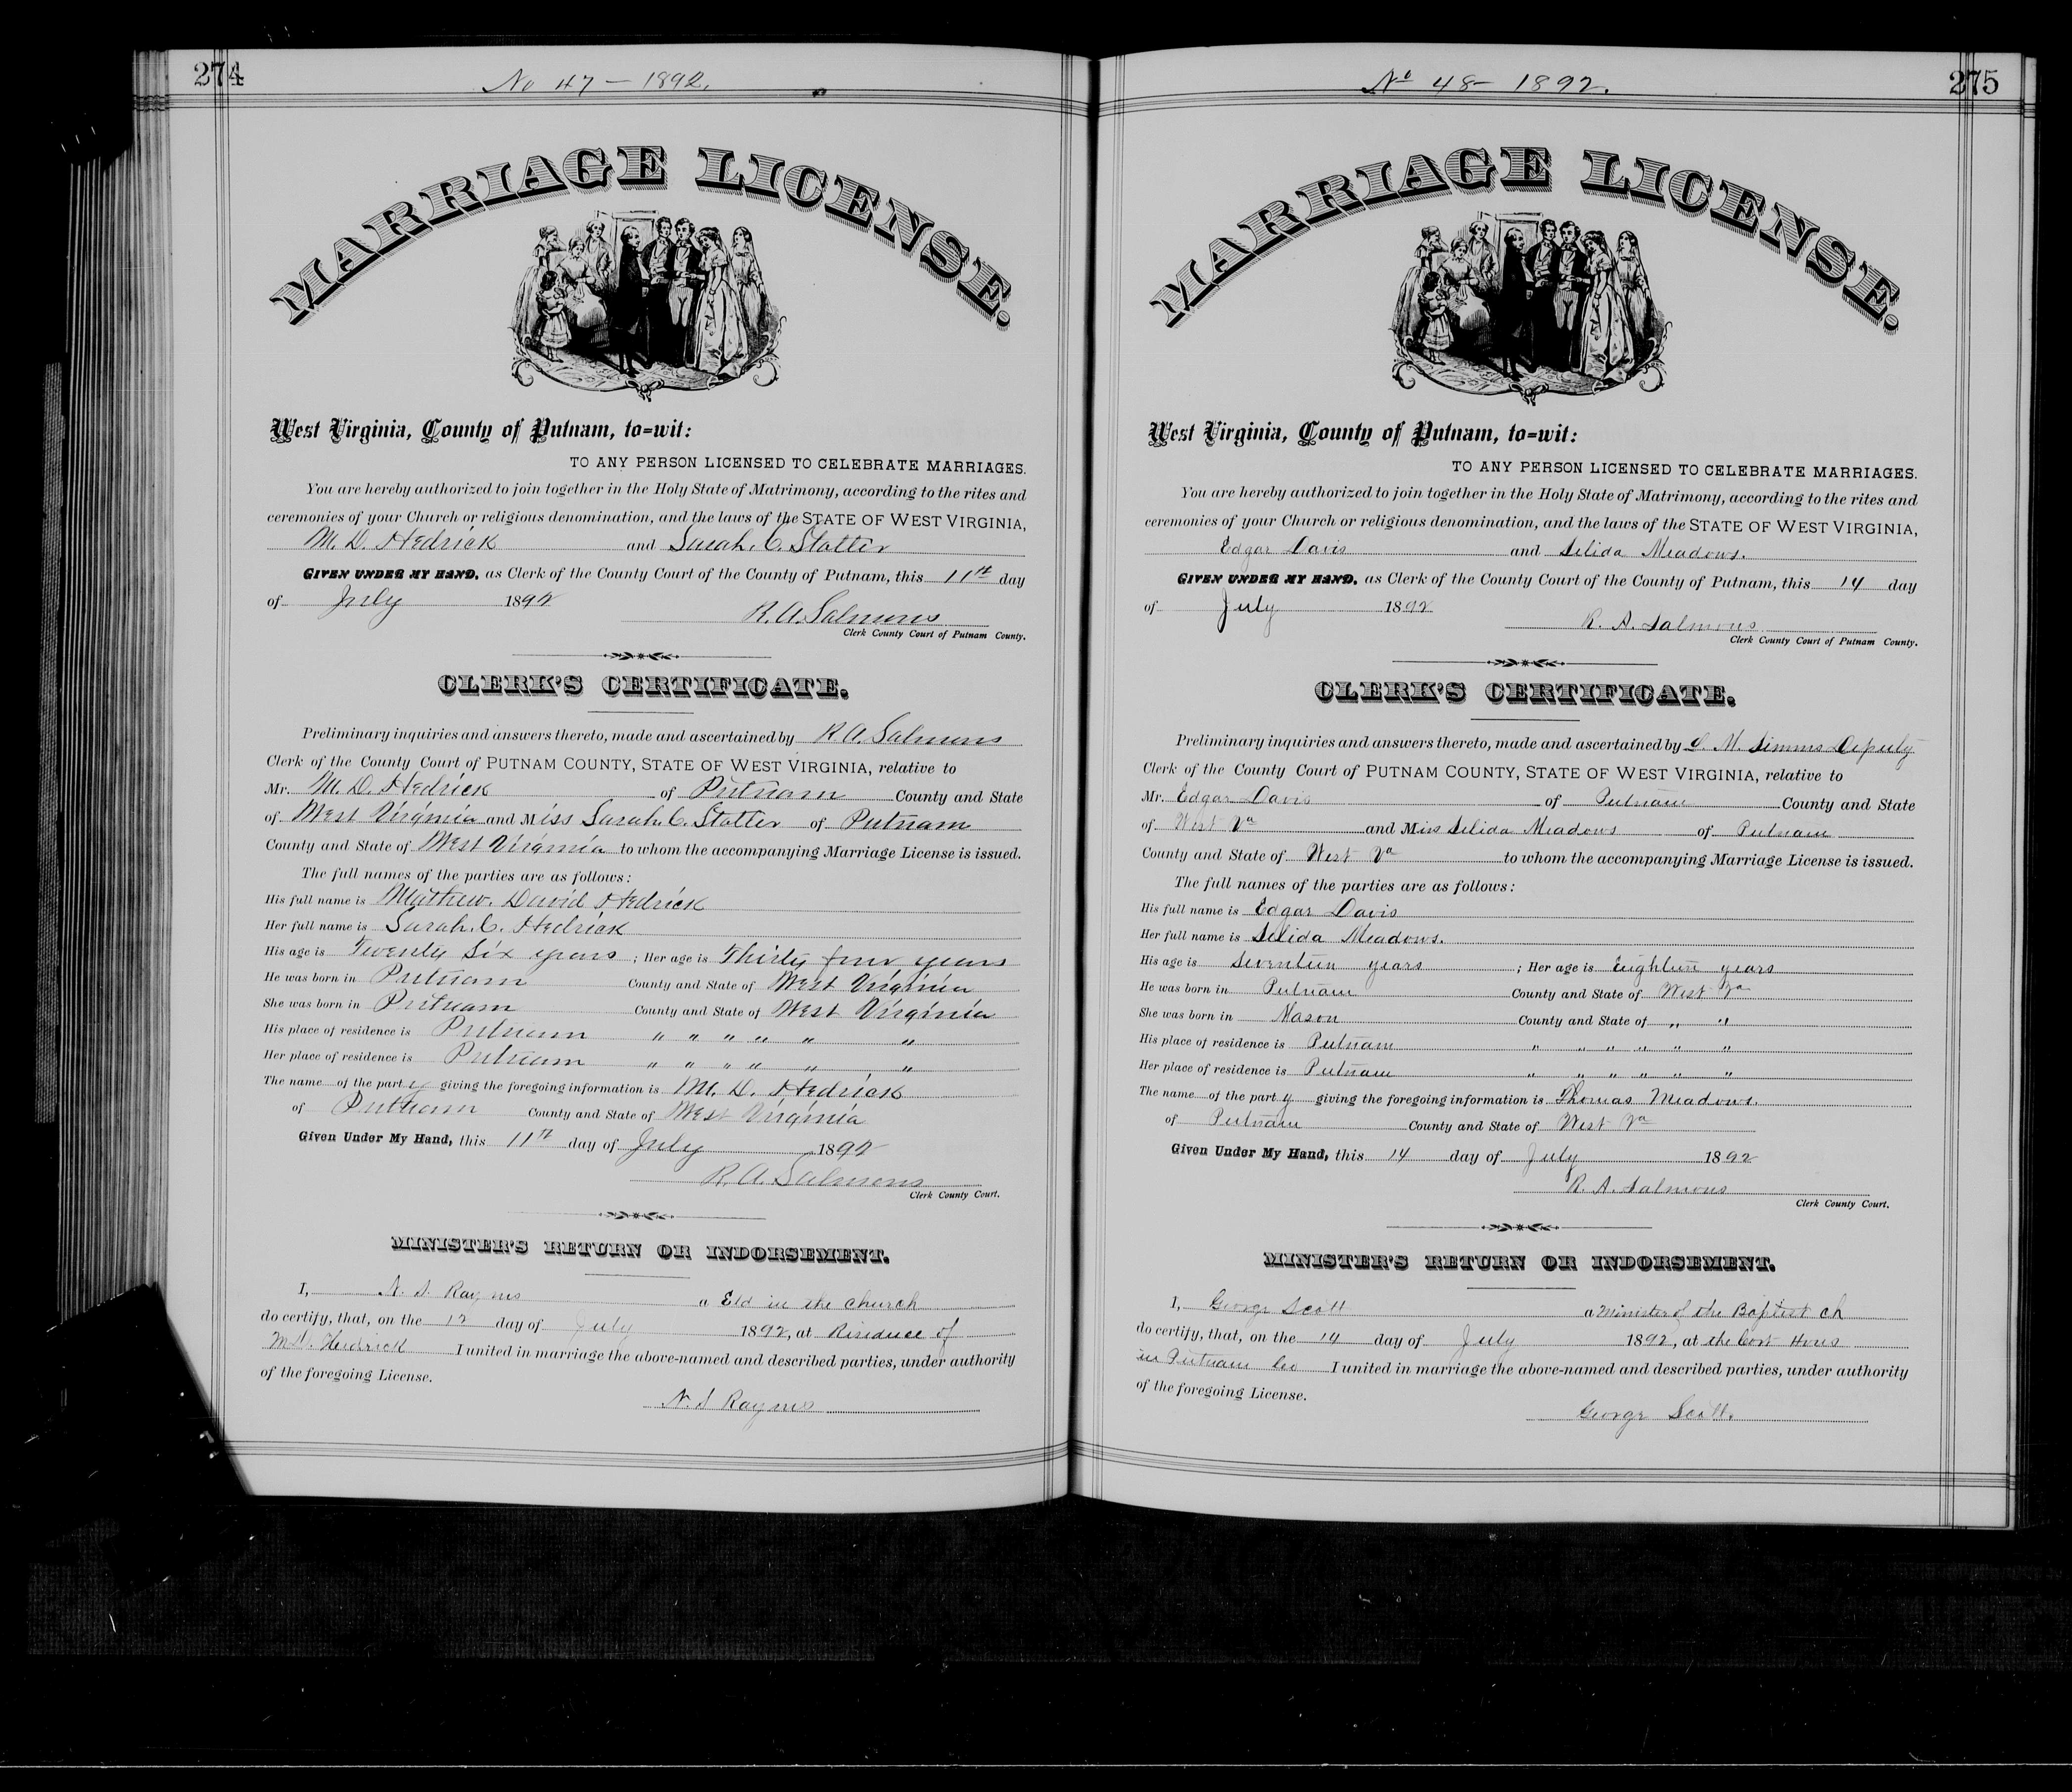 274
No 47 — 1892.
MARRIAGE LICENSE.
West Virginia, County of Putnam, to=wit:
TO ANY PERSON LICENSED TO CELEBRATE MARRIAGES.
You are hereby authorized to join together in the Holy State of Matrimony, according to the rites and
ceremonies of your Church or religious denomination, and the laws of the STATE OF WEST VIRGINIA,
M. D. Hedrick and Sarah. C. Statler
GIVEN UNDER MY HAND, as Clerk of the County Court of the County of Putnam, this 11th day
of July 1892
R. A. Salmons
Clerk County Court of Putnam County.
CLERK'S CERTIFICATE.
Preliminary inquiries and answers thereto, made and ascertained by R. A. Salmons
Clerk of the County Court of PUTNAM COUNTY, STATE OF WEST VIRGINIA, relative to
Mr. M. D. Hedrick of Putnam County and State
of West Virginia and Miss Sarah. C. Statler of Putnam
County and State of West Virginia to whom the accompanying Marriage License is issued.
The full names of the parties are as follows:
His full name is Mathew. David Hedrick
Her full name is Sarah. C. Hedrick
His age is Twenty Six years ; Her age is Thirty four years
He was born in Putnam County and State of West Virginia
She was born in Putnam County and State of West Virginia
His place of residence is Putnam " " " " " "
Her place of residence is Putnam " " " " " "
The name of the party giving the foregoing information is M. D. Hedrick
of Putnam County and State of West Virginia
Given Under My Hand, this 11th day of July 1892
R. A. Salmons
Clerk County Court.
MINISTER'S RETURN OR INDORSEMENT.
I, N. S. Raynes a Eld in the church
do certify, that, on the 12 day of July 1892, at Residuce of
M D. Hedrick I united in marriage the above-named and described parties, under authority
of the foregoing License.
N. S Raynes
275
No 48 - 1892.
MARRIAGE LICENSE.
West Virginia, County of Putnam, to=wit:
TO ANY PERSON LICENSED TO CELEBRATE MARRIAGES.
You are hereby authorized to join together in the Holy State of Matrimony, according to the rites and
ceremonies of your Church or religious denomination, and the laws of the STATE OF WEST VIRGINIA,
Edgar Davis and Selida Meadows.
GIVEN UNDER MY HAND, as Clerk of the County Court of the County of Putnam, this 14 day
of July 1892
R. A. Salmons
Clerk County Court of Putnam County.
CLERK'S CERTIFICATE.
Preliminary inquiries and answers thereto, made and ascertained by S. M. Simms Deputy
Clerk of the County Court of PUTNAM COUNTY, STATE OF WEST VIRGINIA, relative to
Mr. Edgar Davis of Putnam County and State
of West Va and Miss Selida Meadows of Putnam
County and State of West Va to whom the accompanying Marriage License is issued.
The full names of the parties are as follows:
His full name is Edgar Davis
Her full name is Selida Meadows.
His age is Seventeen years ; Her age is Eighteen years
He was born in Putnam County and State of West Va
She was born in Mason County and State of " "
His place of residence is Putnam " " " " " "
Her place of residence is Putnam " " " " " "
The name of the party giving the foregoing information is Thomas Meadows.
of Putnam County and State of West Va
Given Under My Hand, this 14 day of July 1892
R. A. Salmons
Clerk County Court.
MINISTER'S RETURN OR INDORSEMENT.
I, George Scott a Minister of the Baptist ch
do certify, that, on the 14 day of July 1892, at the Cort Hous
in Putnam Co I united in marriage the above-named and described parties, under authority
of the foregoing License.
George Scott.